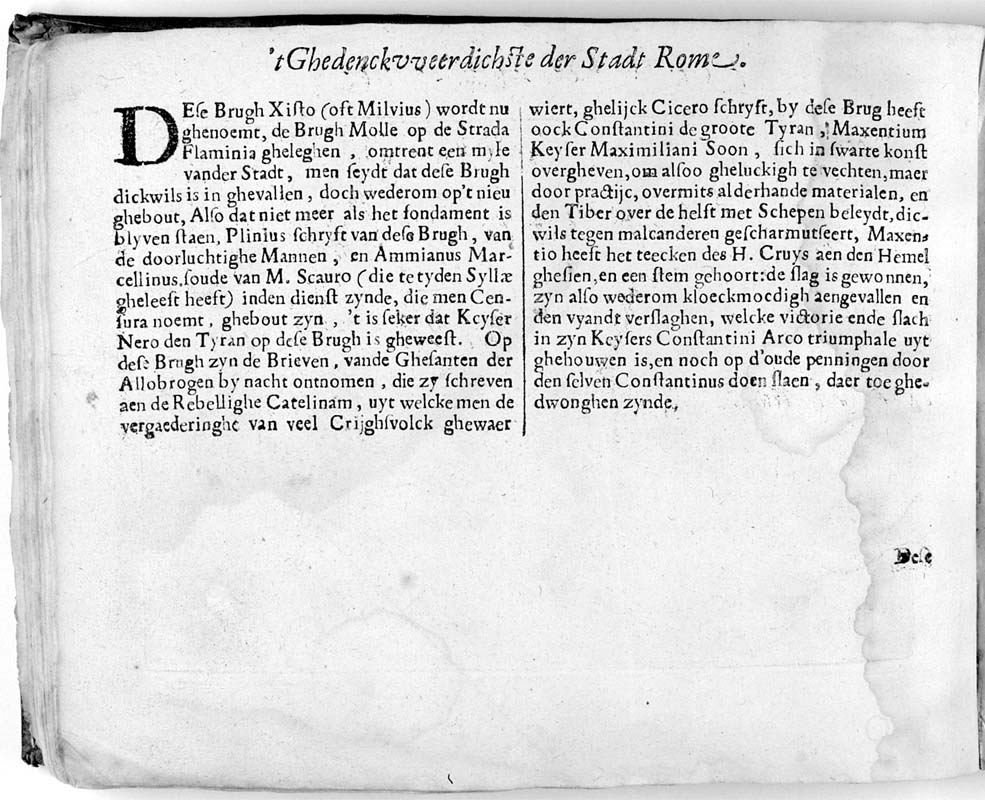 'tGhedenckvveerdichste der Stadt Rome.
DEse Brugh Xisto (oft Milvius) wordt nu
ghenoemt, de Brugh Molle op de Strada
Flaminia gheleghen, omtrent een myle
vander Stadt, men seydt dat dese Brugh
dickwils is in ghevallen, doch wederom op't nieu
ghebout, Also dat niet meer als het fondament is
blyven staen, Plinius schryft van dese Brugh, van
de doorluchtighe Mannen, en Ammianus Mar-
cellinus, soude van M. Scauro (die te tyden Syllæ
gheleeft heeft) inden dienst zynde, die men Cen-
sura noemt, ghebout zyn, 't is seker dat Keyser
Nero den Tyran op dese Brugh is gheweest. Op
dese Brugh zyn de Brieven, vande Ghesanten der
Allobrogen by nacht ontnomen, die zy schreven
aen de Rebellighe Catelinam, uyt welcke men de
vergaederinghe van veel Crijghsvolck ghewaer
wiert, ghelijck Cicero schryft, by dese Brug heeft
oock Constantini de groote Tyran, Maxentium
Keyser Maximiliani Soon, sich in swarte konst
overgheven, om alsoo gheluckigh te vechten, maer
door practijc, overmits alderhande materialen, en
den Tiber over de helft met Schepen beleydt, dic-
wils tegen malcanderen gescharmutseert, Maxen-
tio heeft het teecken des H. Cruys aen den Hemel
ghesien, en een stem gehoort: de slag is gewonnen,
zyn also wederom kloeckmoedigh aengevallen en
den vyandt verslaghen, welcke victorie ende slach
in zyn Keysers Constantini Arco triumphale uyt
ghehouwen is, en noch op d'oude penningen door
den selven Constantinus doen slaen, daer toe ghe-
dwonghen zynde.
Dese